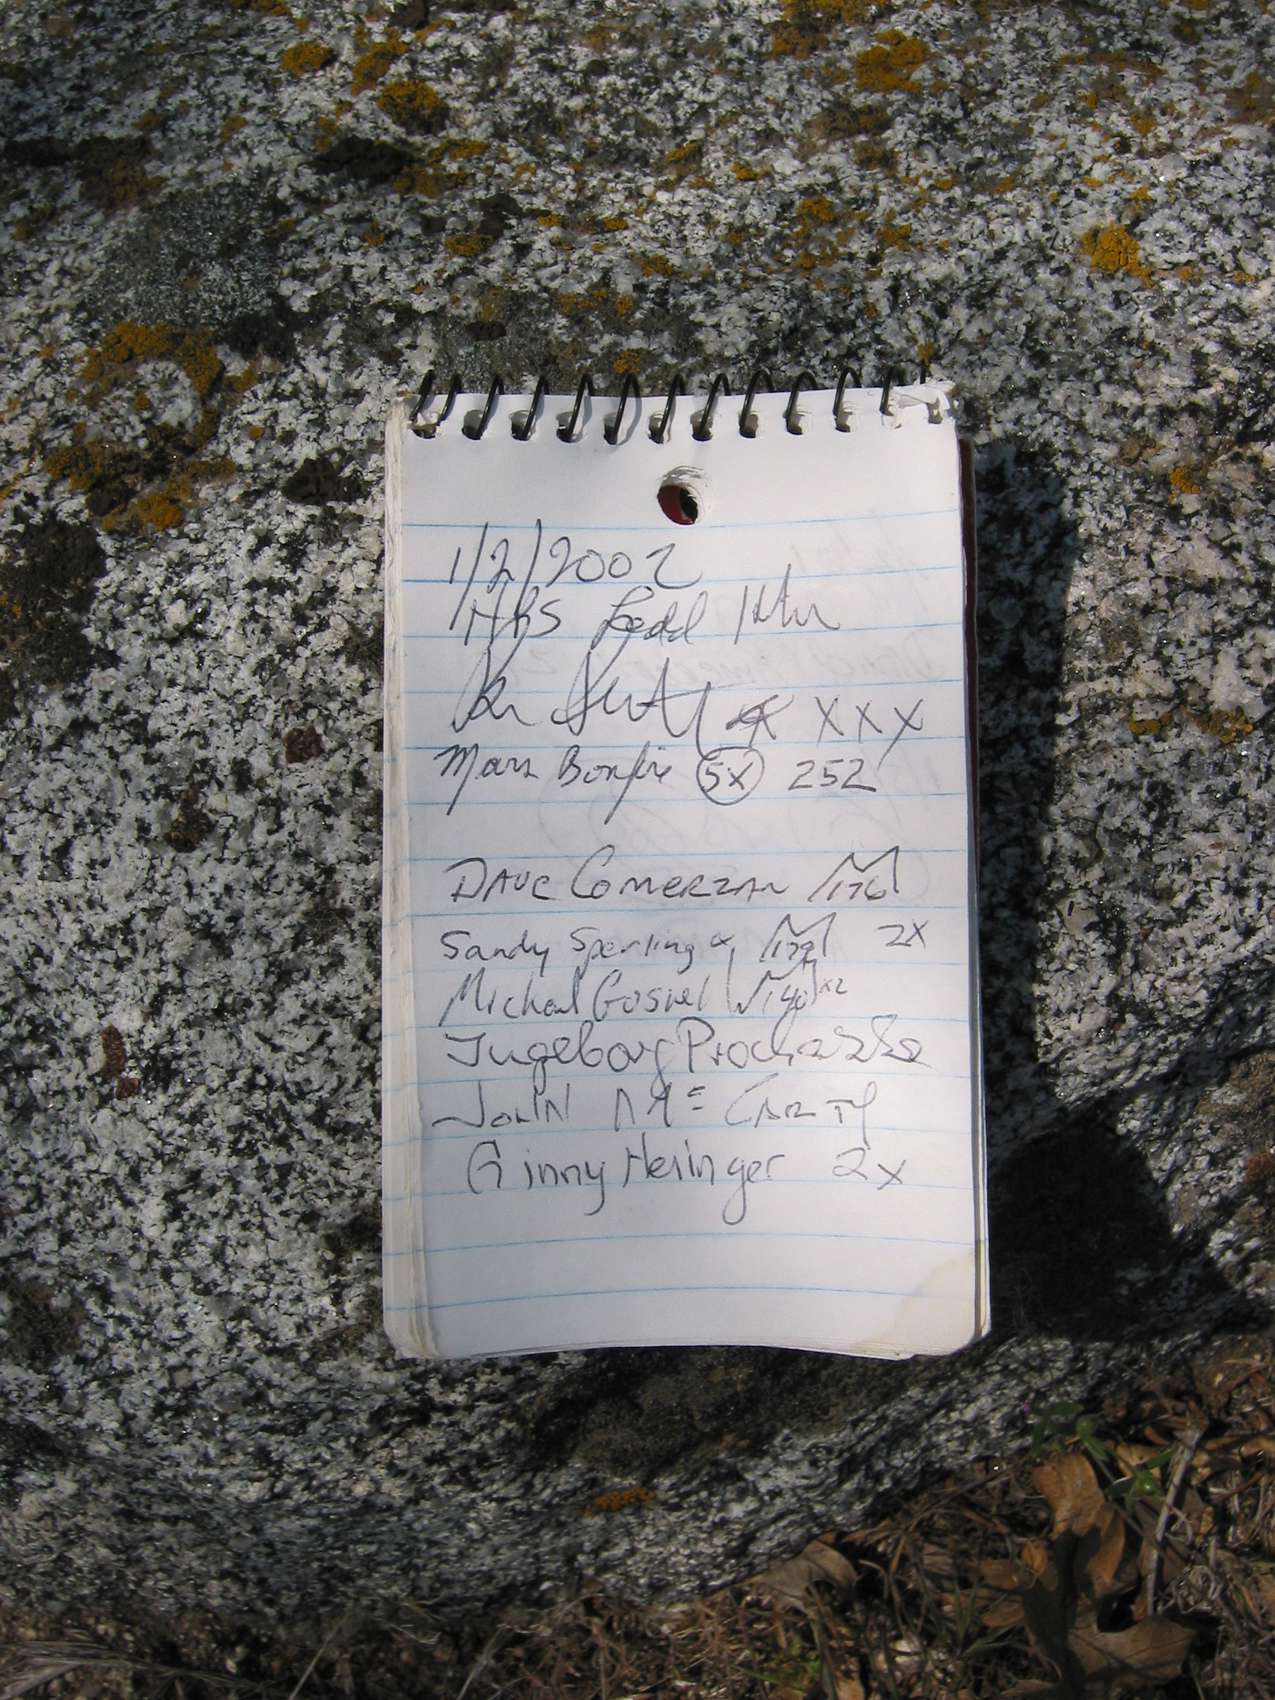 1/2/2002
HPS
XXX
Mars Bonfire 5x 252
DAVE COMERZAN 176
Sandy Sperling 2X
Michael Gosnel 140 x2
Ingeborg Prochazka
JOHN Mc CARTY
Ginny Heringer 2x